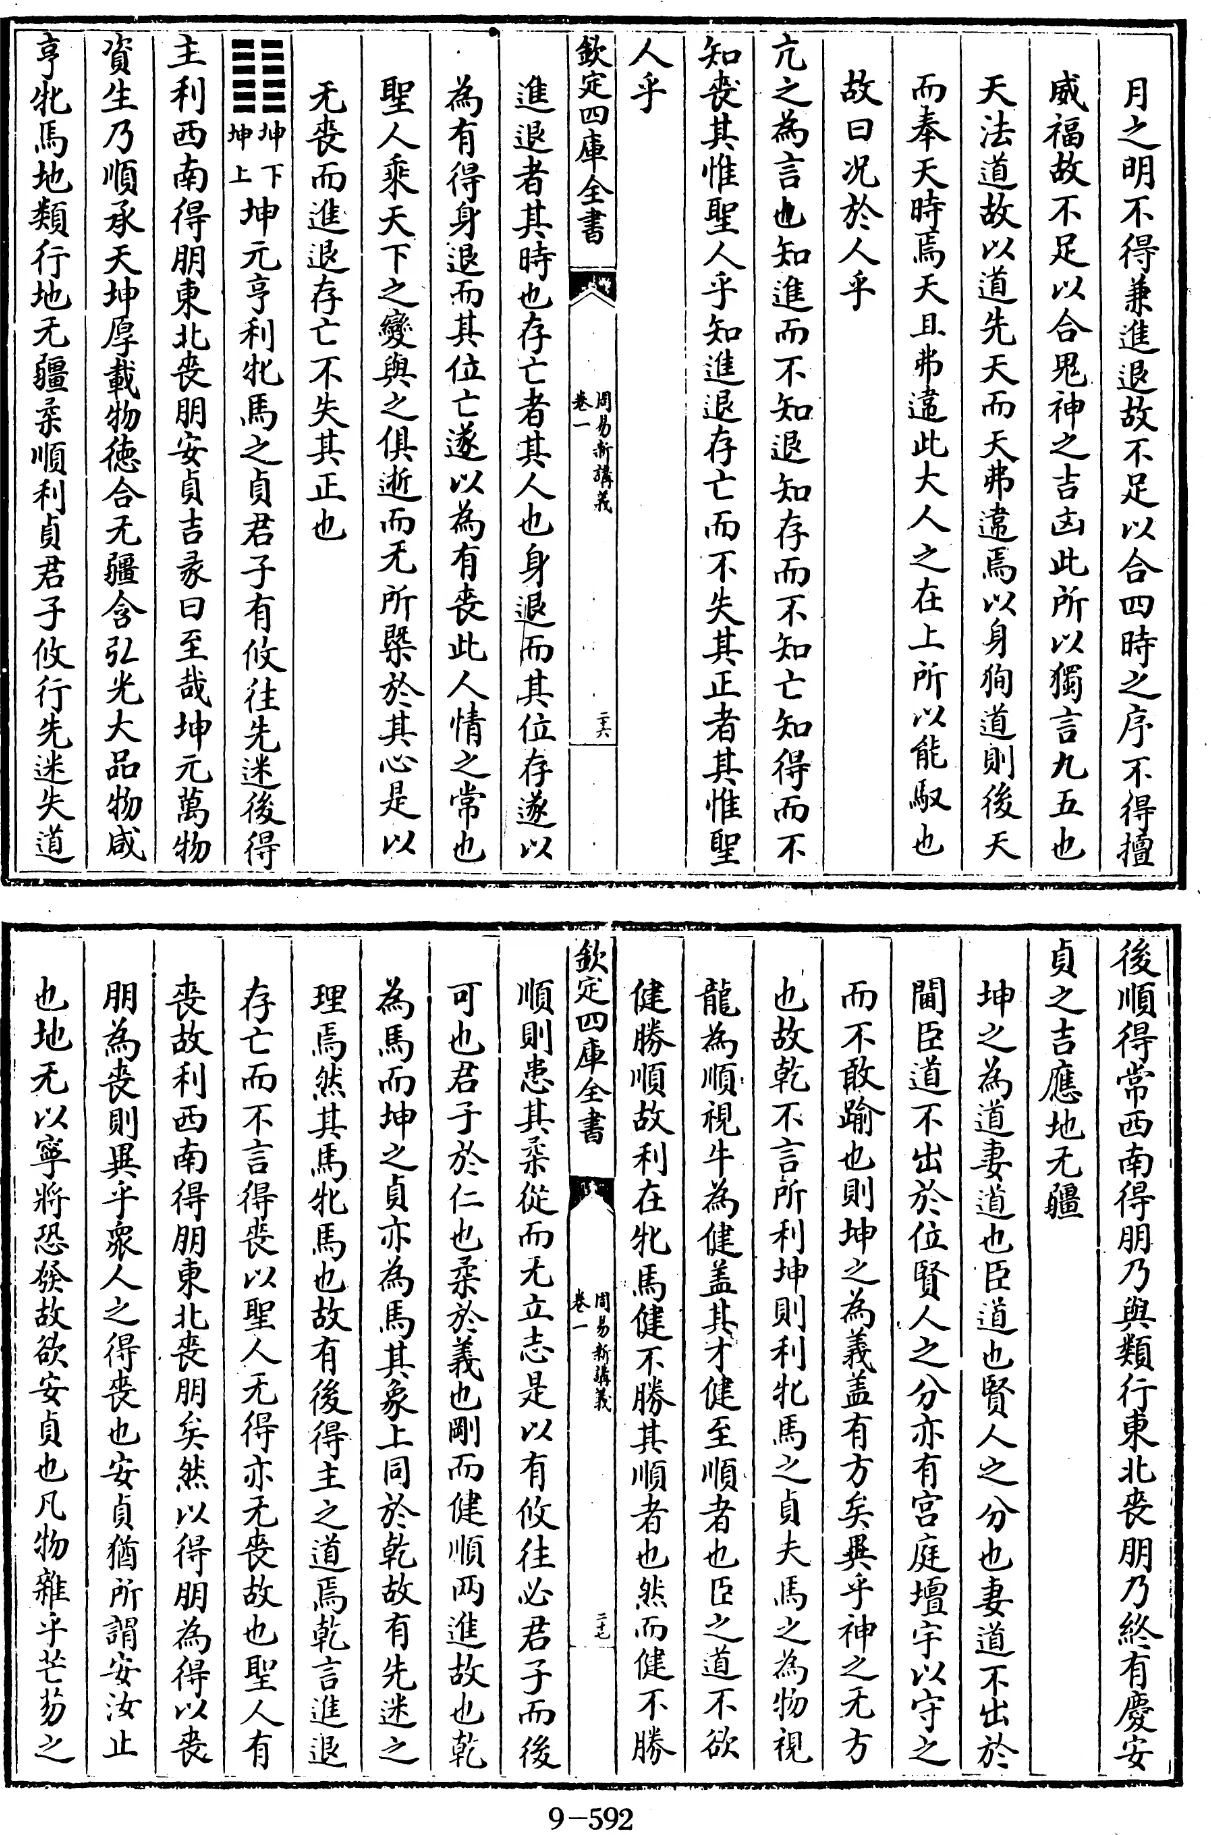 月之明不得兼進退故不足以合四時之序不得擅
威福故不足以合鬼神之吉凶此所以獨言九五也
天法道故以道先天而天弗違焉以身徇道則後天
而奉天時焉天且弗違此大人之在上所以能馭也
故曰况於人乎
亢之為言也知進而不知退知存而不知亡知得而不
知喪其惟聖人乎知進退存亡而不失其正者其惟聖
人乎
欽定四庫全書
周易新講義
卷一
二六
進退者其時也存亡者其人也身退而其位存遂以
為有得身退而其位亡遂以為有喪此人情之常也
聖人乘天下之變與之俱逝而无所槩於其心是以
无喪而進退存亡不失其正也
坤下
坤上
坤元亨利牝馬之貞君子有攸往先迷後得
主利西南得朋東北喪朋安貞吉彖曰至哉坤元萬物
資生乃順承天坤厚載物德合无疆含弘光大品物咸
亨牝馬地類行地无疆柔順利貞君子攸行先迷失道
後順得常西南得朋乃與類行東北喪朋乃終有慶安
貞之吉應地无疆
坤之為道妻道也臣道也賢人之分也妻道不出於
閫臣道不出於位賢人之分亦有宮庭壇宇以守之
而不敢踰也則坤之為義盖有方矣異乎神之无方
也故乾不言所利坤則利牝馬之貞夫馬之為物視
龍為順視牛為健盖其才健至順者也臣之道不欲
健勝順故利在牝馬健不勝其順者也然而健不勝
欽定四庫全書
周易新講義
卷一
二七
順則患其柔從而无立志是以有攸往必君子而後
可也君子於仁也柔於義也剛而健順兩進故也乾
為馬而坤之貞亦為馬其象上同於乾故有先迷之
理焉然其馬牝馬也故有後得主之道焉乾言進退
存亡而不言得喪以聖人无得亦无喪故也聖人有
喪故利西南得朋東北喪朋矣然以得朋為得以喪
朋為喪則異乎衆人之得喪也安貞猶所謂安汝止
也地无以寧將恐發故欲安貞也凡物雜乎芒芴之
9-592